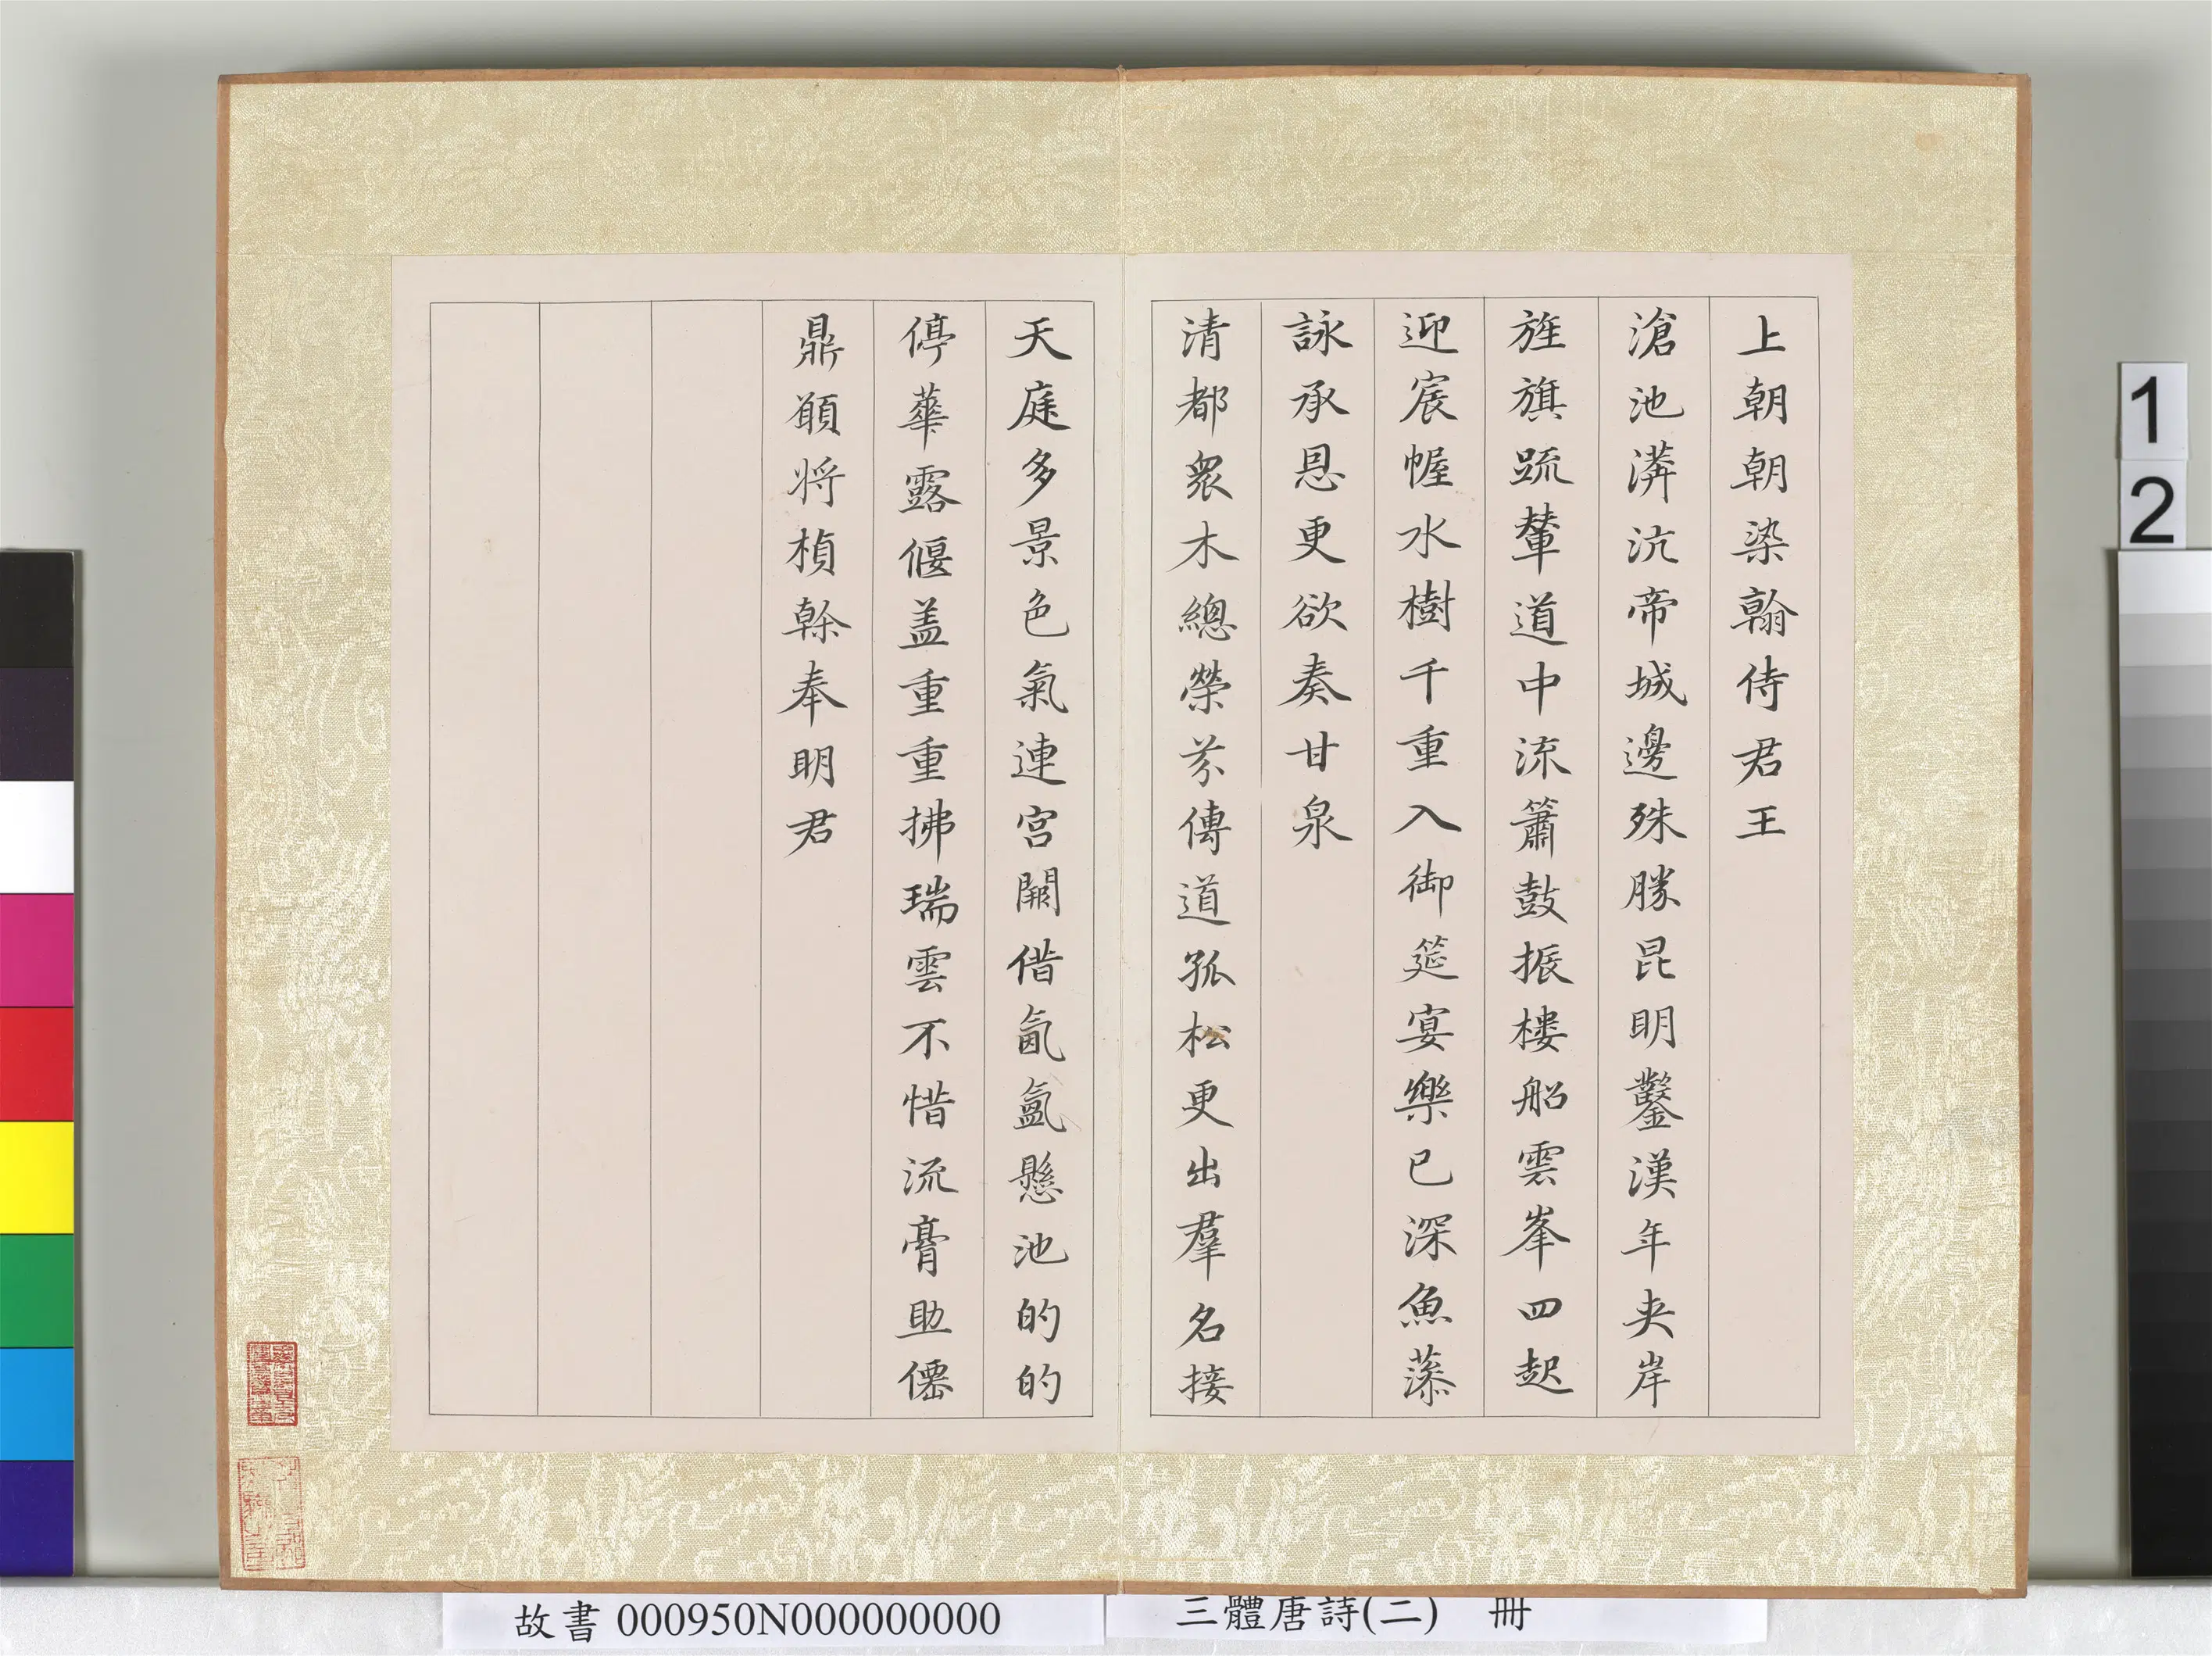 上朝朝染翰侍君王
滄池漭沆帝城邊殊勝昆明鑿漢年夹岸
旌旗踈輦道中流簫鼓振樓船雲峯四起
迎宸幄水樹千重入御筵宴樂已深魚藻
詠承恩更欲奏甘泉
清都衆木總榮芬傳道孤松更出羣名接
天庭多景色氣連宮闕借氤氳懸池的的
停華露偃盖重重拂瑞雲不惜流膏助僊
鼎願将楨榦奉明君
故書 000950N000000000
三體唐詩(二) 冊
1
2